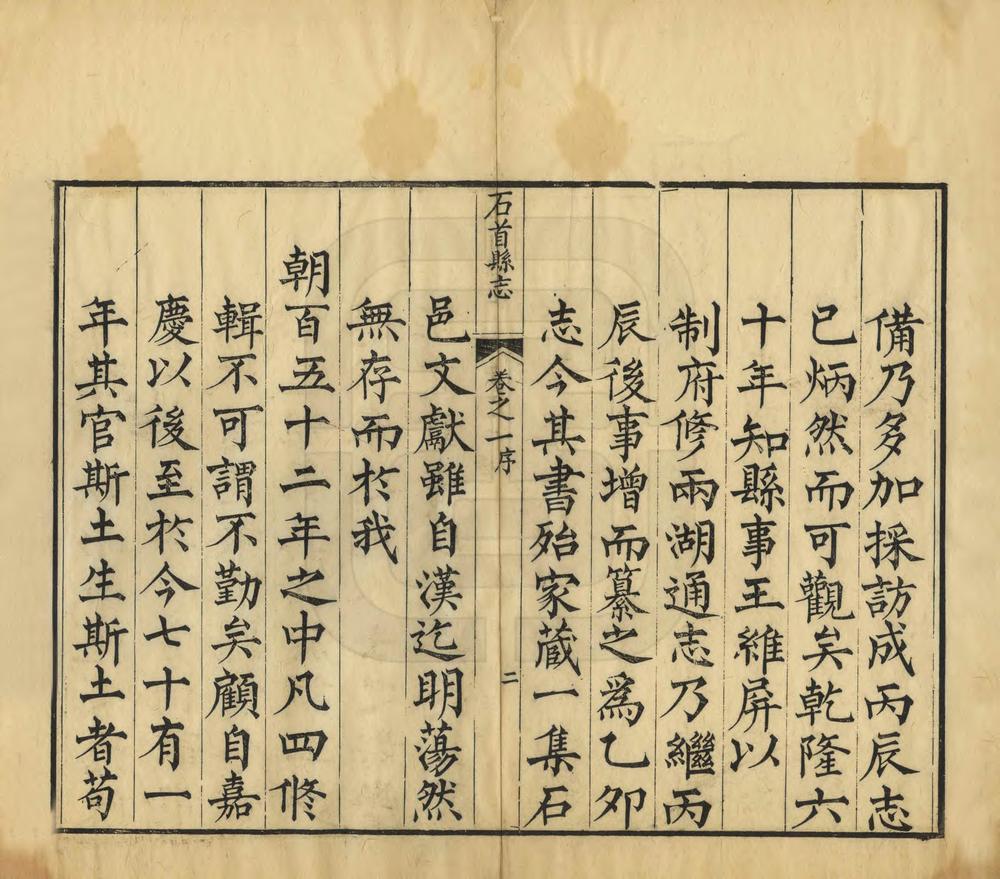 備乃多加採訪成丙辰志
已炳然而可觀矣乾隆六
十年知縣事王維屏以
制府修兩湖通志乃繼丙
辰後事增而纂之爲乙夘
志今其書殆家蔵一集石
石首縣志
卷之一序
二
邑文獻雖自漢迄明蕩然
無存而於我
朝百五十二年之中凡四修
輯不可謂不勤矣顧自嘉
慶以後至於今七十有一
年其官斯土生斯土者苟